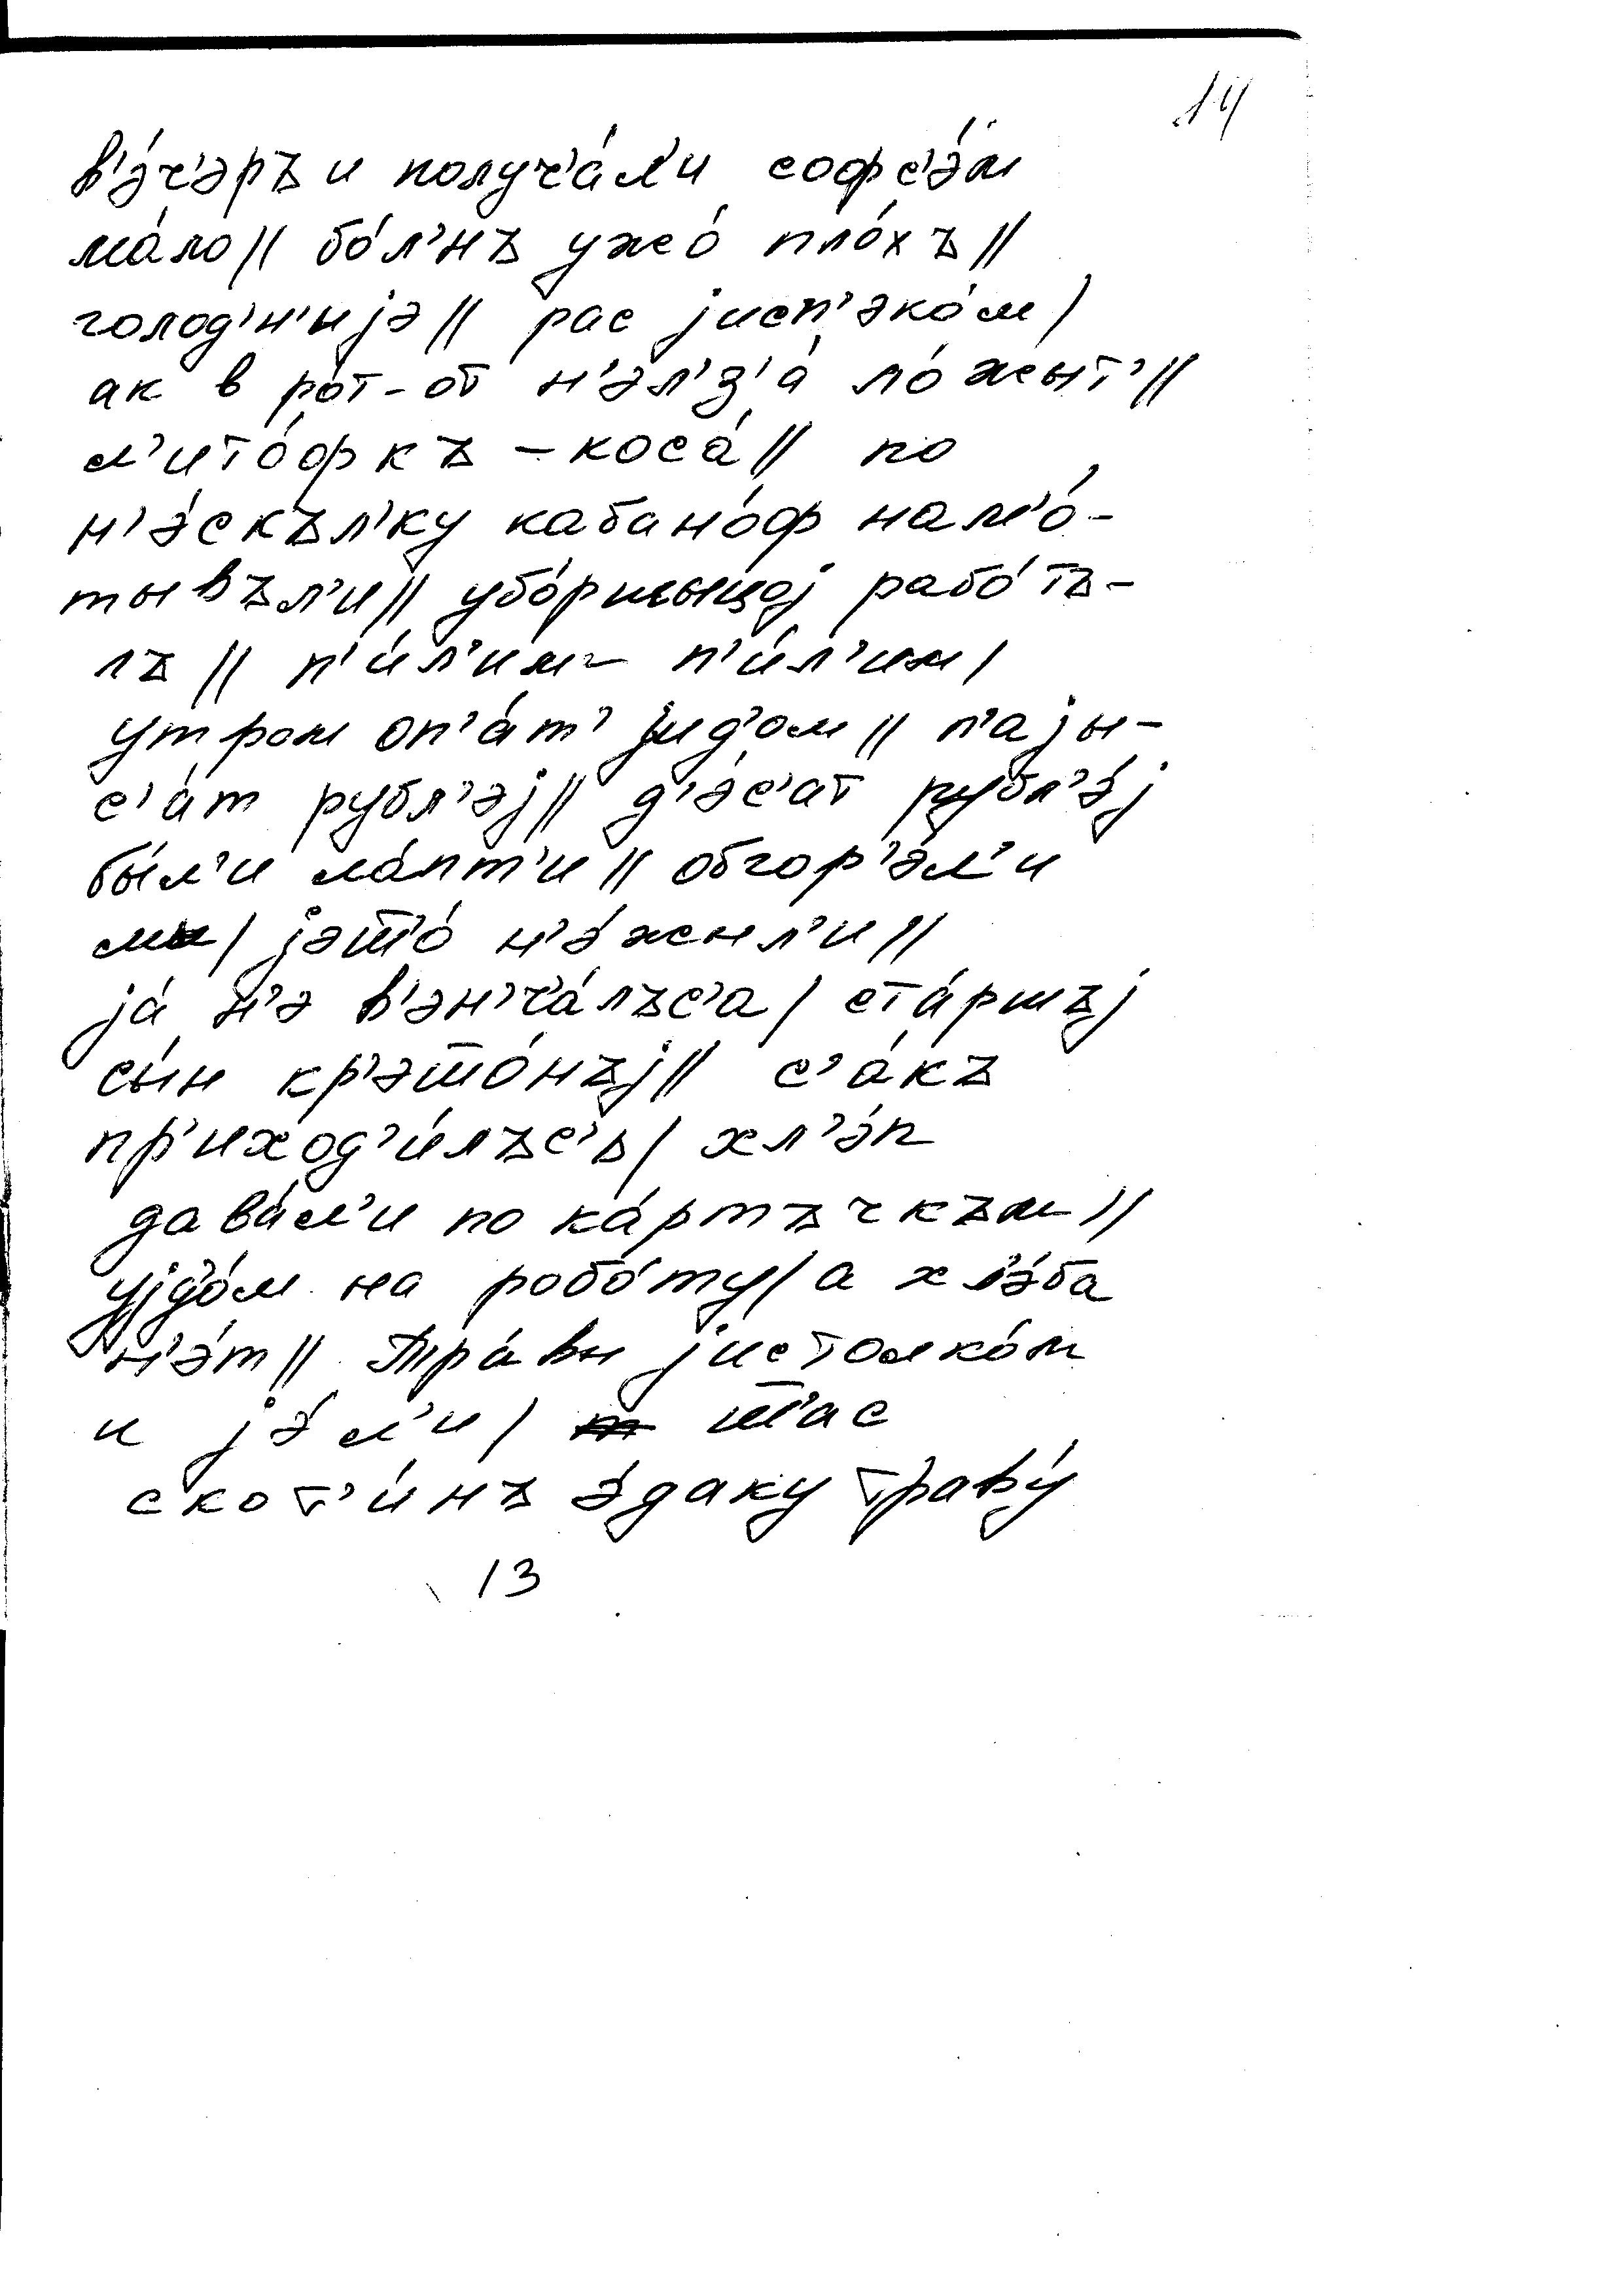 14
в'э́ч'эръ и получ'а́л'и софс'э́м
ма́ло|| бо́л'нъ ужо́ пло́хъ||
голод'н'ијэ|| рас јисп'эко́м|
ак в рот-от н'эл'з'а́ ло́жыт'||
л'ито́фкъ - коса́|| по
н'э́скъл'ку кабано́ф нам'о́-
тывъл'и|| убо́ршыцој рабо́тъ-
лъ|| п'и́л'им - п'и́л'им|
утром оп'а́т' јид'ом|| п'аjы-
с'а́т рубл'эј|| д'э́с'ат рубл'э́ј
бы́л'и ла́пт'и|| обгор'э́л'и
мы| јэшо́ н'э́жыл'и||
ја́ н'э в'эн'ч'а́лъс'а| ста́ршъј
сы́н кр'эшо́нъј|| с'а́къ
пр'иход'и́лъс'ь| хл'э́п
дава́л'и по ка́ртъчкъм||
ујдо́м на робо́ту| а хл'э́ба
н'э́т|| тра́вы јистолко́м
и јэ́л'и| ш'ас
скот'и́нъ э́даку траву́
13